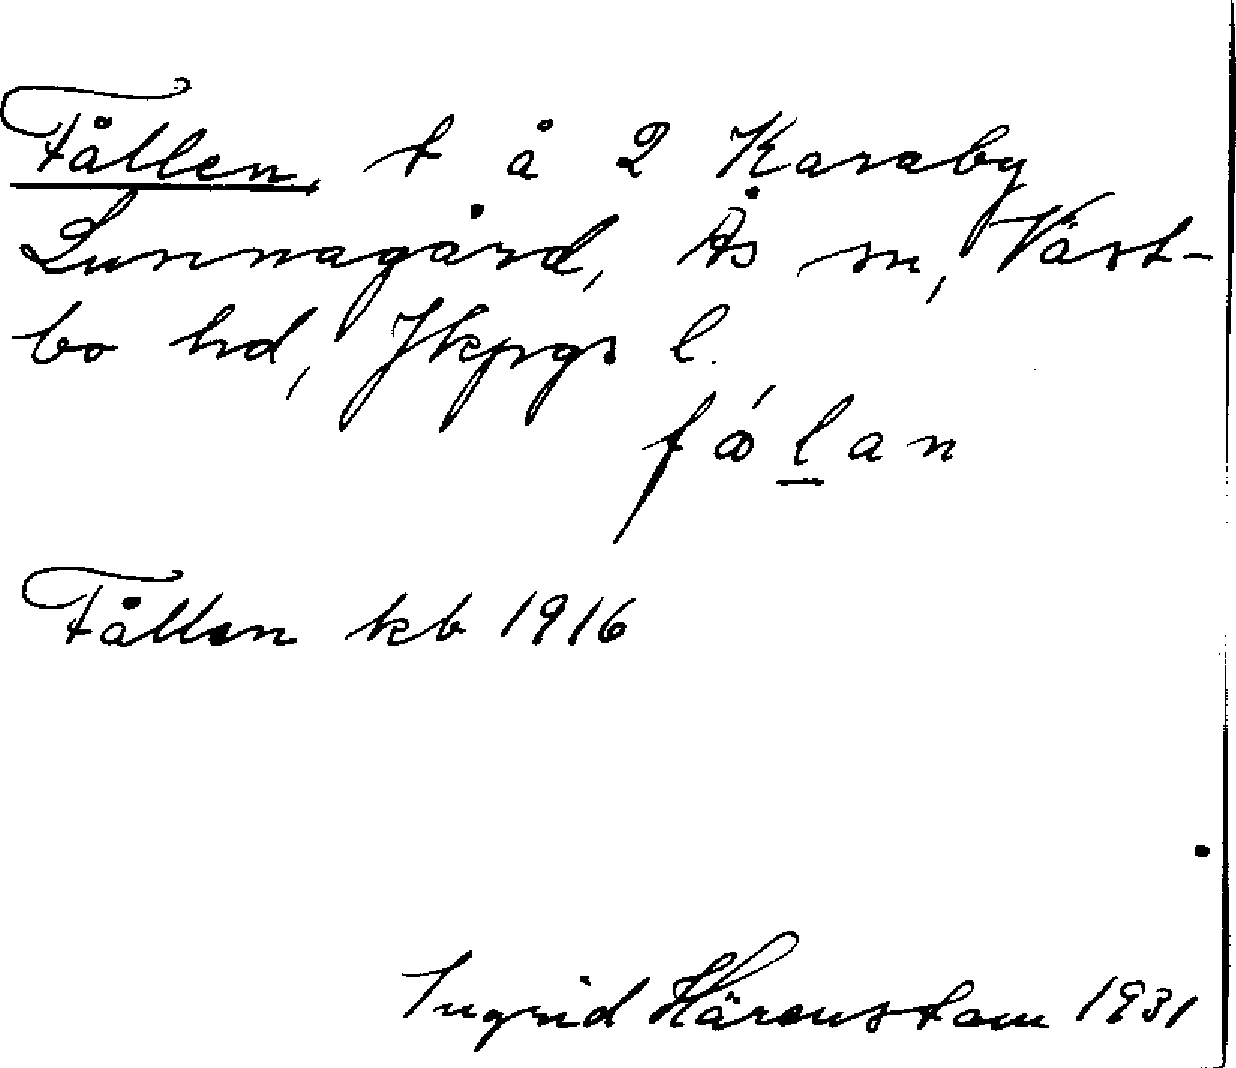 Fållen, t å 2 Karaby
Lunnagård, Ås sn, Väst-
bo hd, Jkpgs l.
fólan
Fållen kb 1916
Ingrid Härenstam 1931